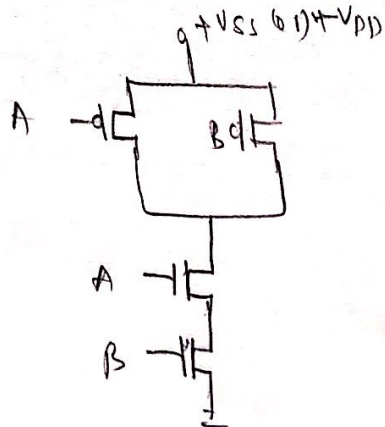 +VSS (01) +VDD
A
B
A
B